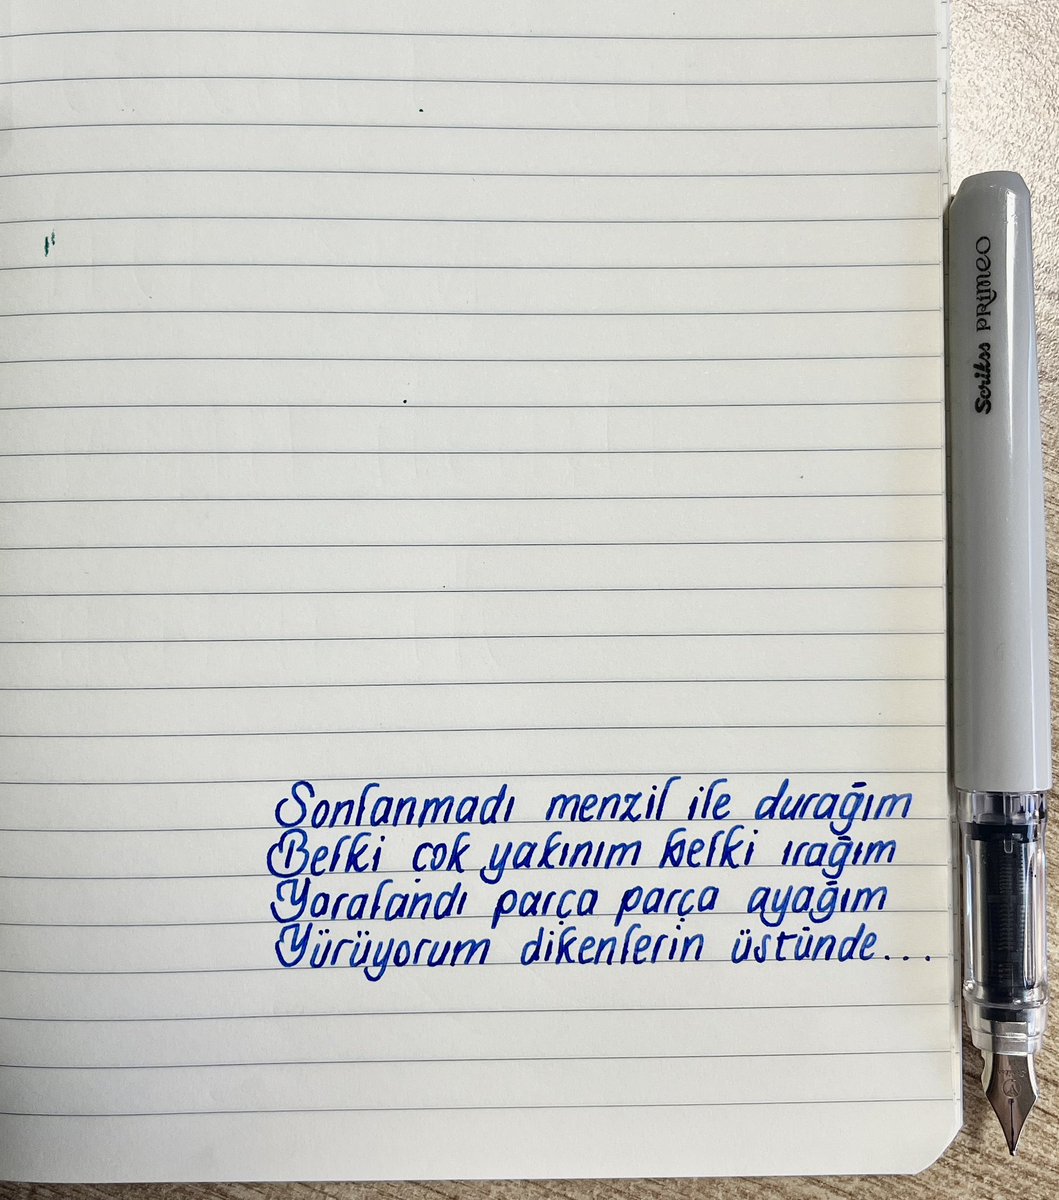 Sonlanmadı menzil ile durağım
Belki çok yakınım belki ırağım
Yaralandı parça parça ayağım
Yürüyorum dikenlerin üstünde...
Scrikss PRIMEO